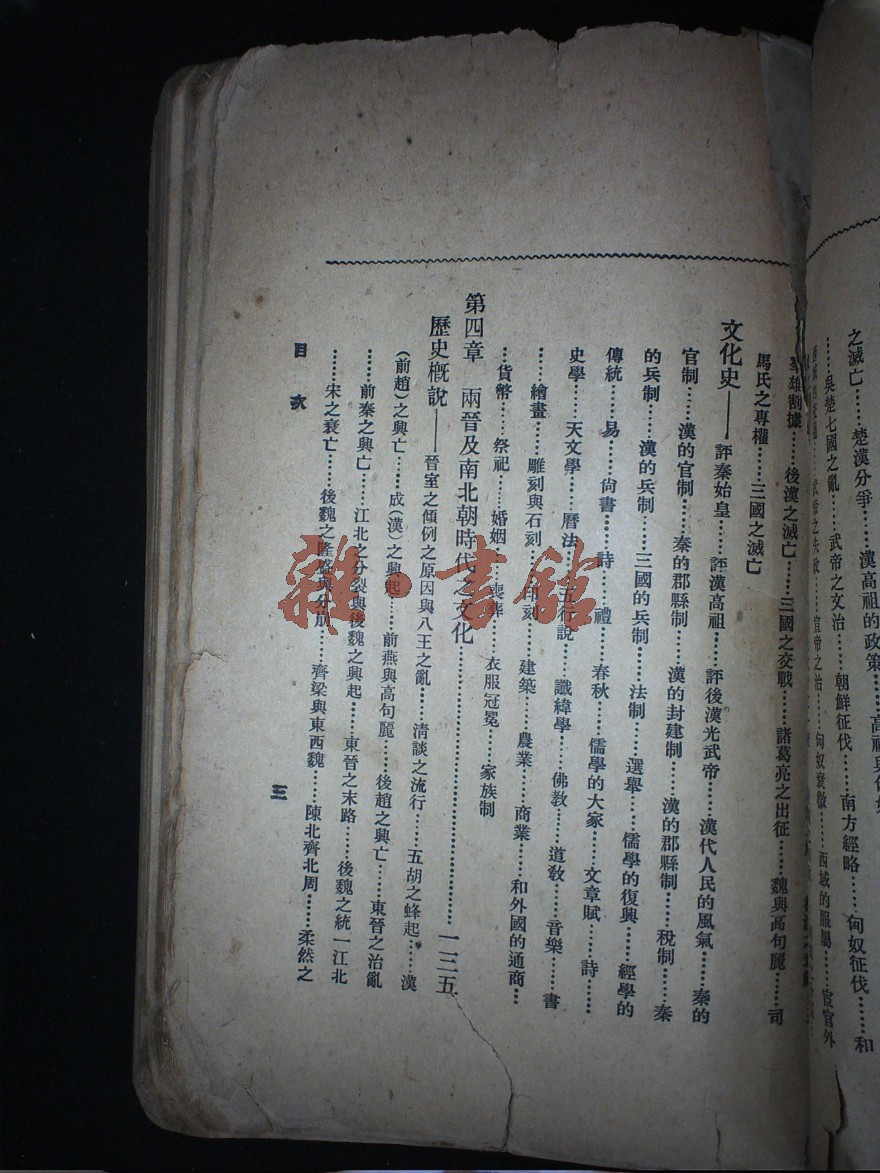 之滅亡……楚漢分爭……漢高祖的政策
吳楚七國之亂……武帝之文治……朝鮮征伐……南方經略……匈奴征伐……和
武帝之失政……宣帝之治……匈奴衰微……西域的服屬……宦官外
羣雄割據……後漢之滅亡……三國之交戰……諸葛亮之出征……魏與高句麗……司
馬氏之專權……三國之滅亡
文化史——評秦始皇……評漢高祖……評後漢光武帝……漢代人民的風氣……秦的
官制……漢的官制……秦的郡縣制……漢的封建制……漢的郡縣制……稅制……秦
的兵制……漢的兵制……三國的兵制……法制……選舉……儒學的復興……經學的
傳統……易……尚書……詩……禮……春秋……儒學的大家……文章賦……詩……
史學……天文學……曆法……五行說……讖緯學……佛教……道教……音樂……書
……繪畫……雕刻與石刻……印刻……建築……農業……商業……和外國的通商……
……貨幣……祭祀……婚姻……喪葬……衣服冠冕……家族制
第四章 兩晉及南北朝時代之文化……一三五
歷史概說——晉室之傾例之原因與八王之亂……清談之流行……五胡之蜂起……漢
(前趙)之興亡……成(漢)之興起……前燕與高句麗……後趙之興亡……東晉之治亂
……前秦之興亡……江北之分裂與後魏之興起……東晉之末路……後魏之統一江北
……宋之衰亡……後魏之隆盛與分崩……齊梁與東西魏……陳北齊北周……柔然之
目次
三
雜·書館